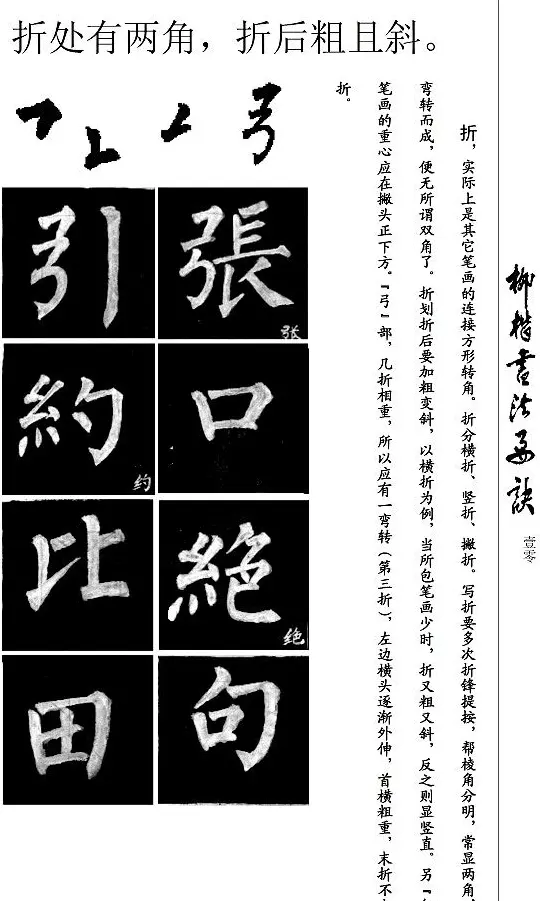 折处有两角，折后粗且斜。
柳楷書法要訣
壹零
折，实际上是其它笔画的连接方形转角。折分横折、竖折、撇折。写折要多次折锋提按，帮棱角分明，常显两角，
弯转而成，便无所谓双角了。折划折后要加粗变斜，以横折为例，当所包笔画少时，折又粗又斜，反之则显竖直。另『
笔画的重心应在撇头正下方。『弓』部，几折相重，所以应有一弯转（第三折），左边横头逐渐外伸，首横粗重，末折不
折。
弓
引 張 张
約 约 口
比 絶 绝
田 句